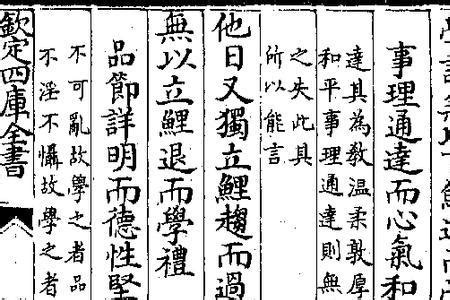 事理通達而心氣和
達其為教温柔敦厚
和平事理通達則無
之失此其
所以能言
他日又獨立鯉趨而過
無以立鯉退而學禮
品節詳明而德性堅
不可亂故學之者品
不淫不懾故學之者
欽定四庫全書